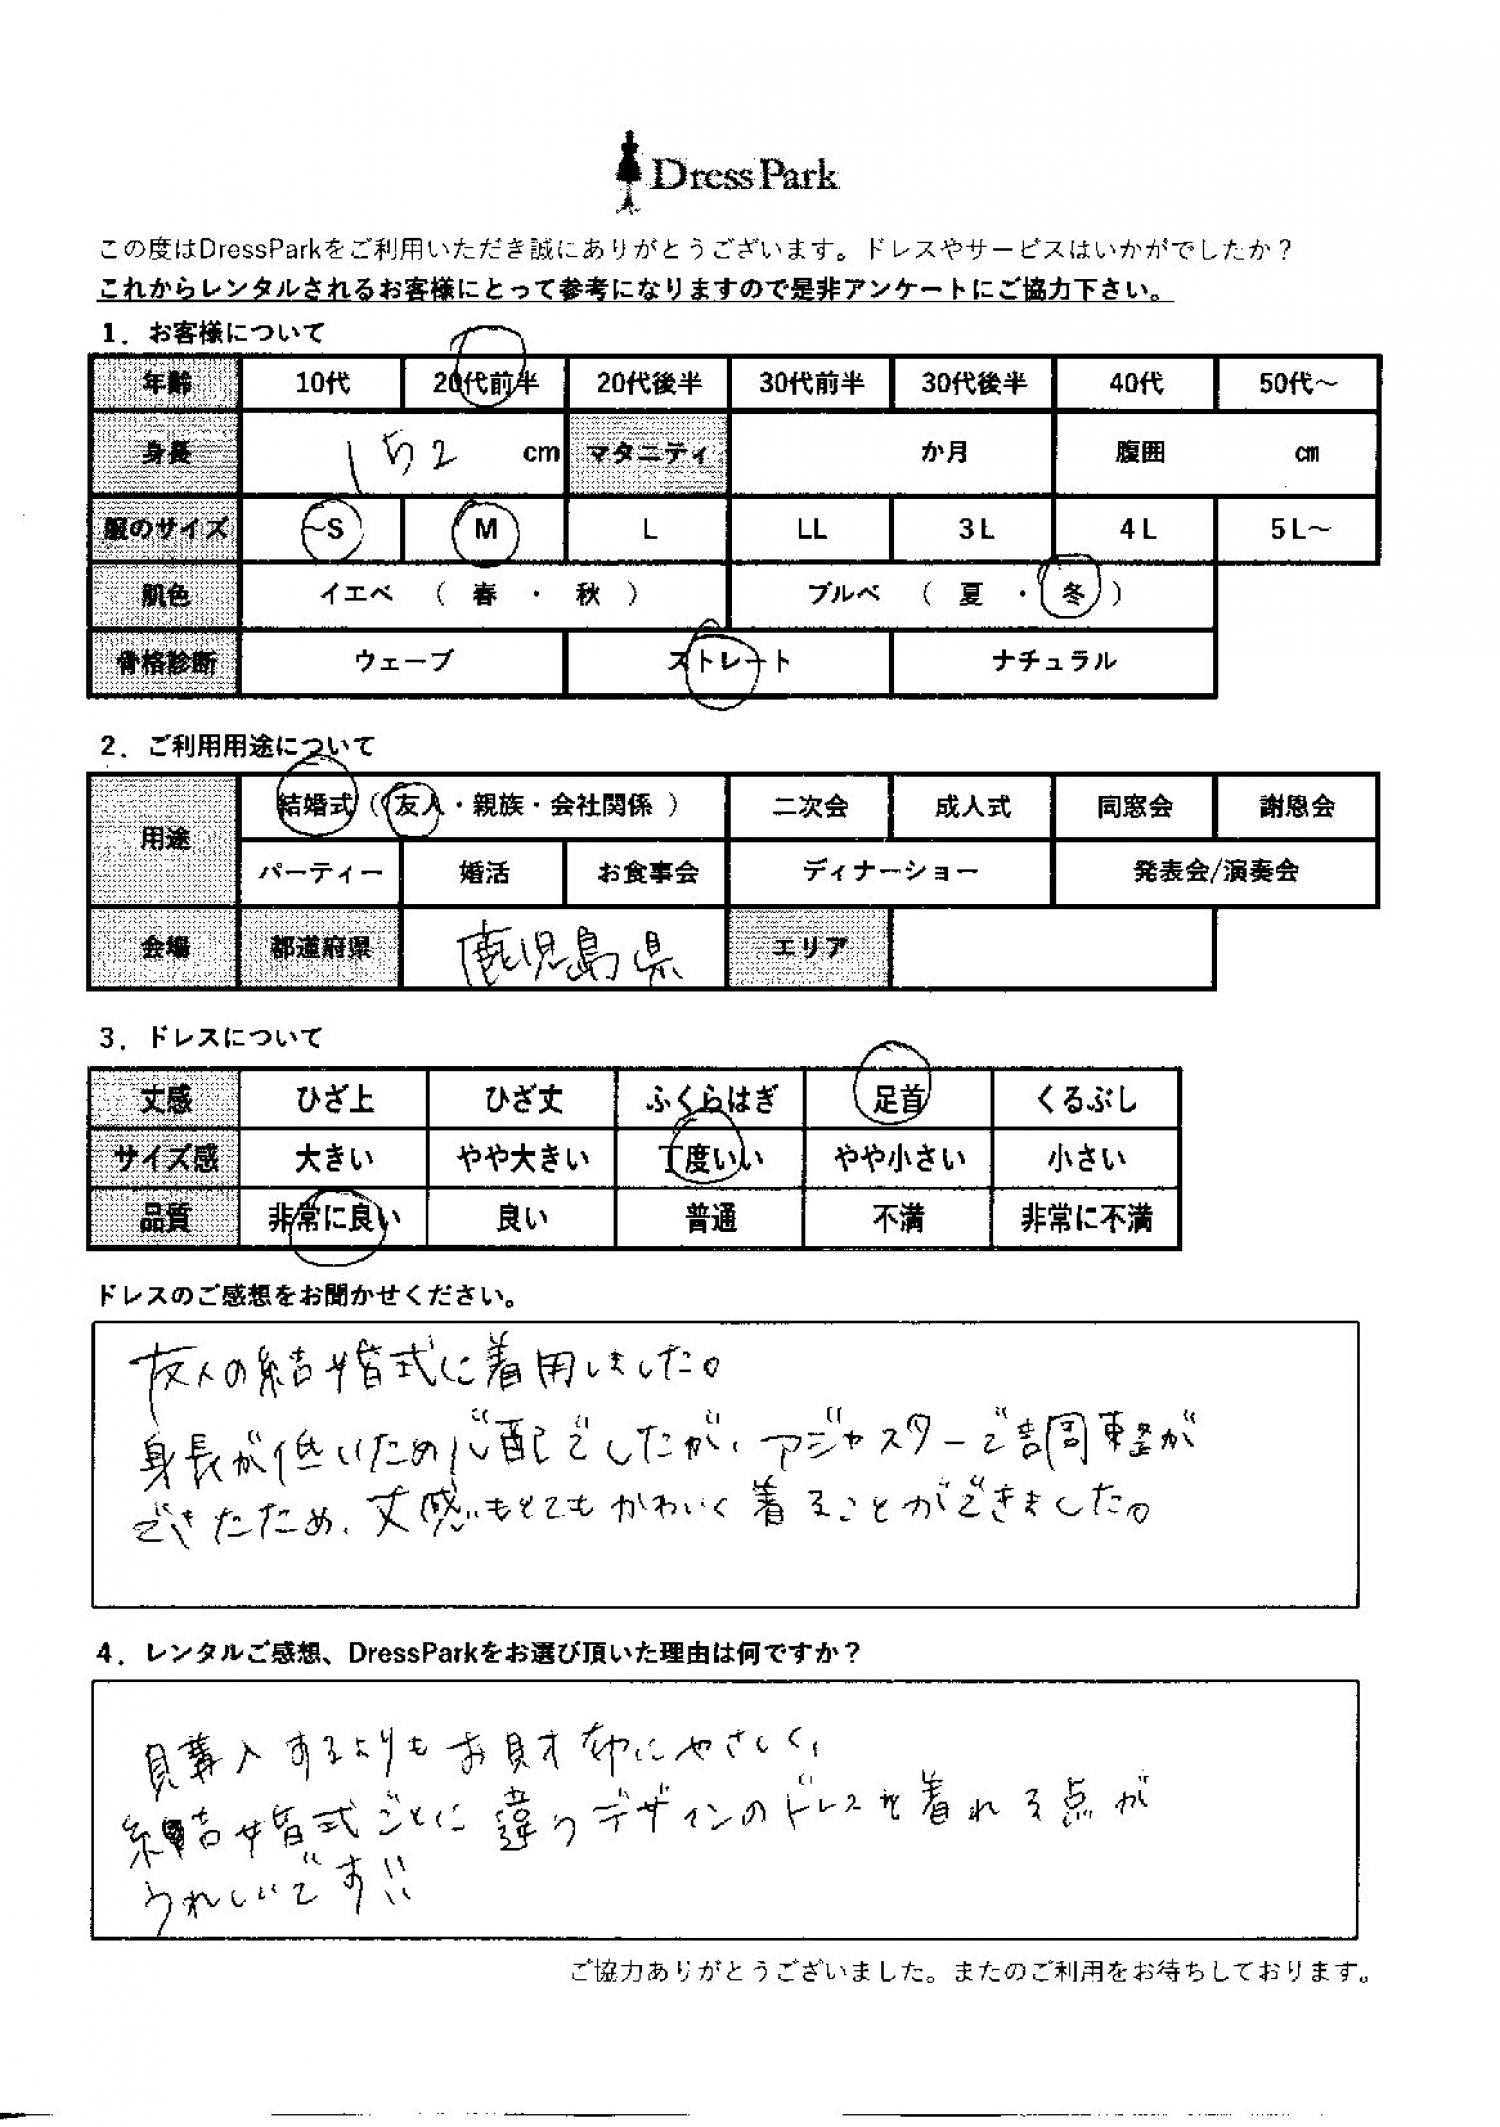 DressPark
この度はDressParkをご利用いただき誠にありがとうございます。ドレスやサービスはいかがでしたか？
これからレンタルされるお客様にとって参考になりますので是非アンケートにご協力下さい。
1．お客様について
年齢 10代 20代前半 20代後半 30代前半 30代後半 40代 50代～
身長 152 cm マタニティ か月 腹囲 cm
服のサイズ ～S M L LL 3L 4L 5L～
肌色 イエベ （ 春 ・ 秋 ） ブルベ （ 夏 ・ 冬 ）
骨格診断 ウェーブ ストレート ナチュラル
2．ご利用用途について
用途 結婚式（ 友人・親族・会社関係 ） 二次会 成人式 同窓会 謝恩会
パーティー 婚活 お食事会 ディナーショー 発表会/演奏会
会場 都道府県 鹿児島県 エリア
3．ドレスについて
丈感 ひざ上 ひざ丈 ふくらはぎ 足首 くるぶし
サイズ感 大きい やや大きい 丁度いい やや小さい 小さい
品質 非常に良い 良い 普通 不満 非常に不満
ドレスのご感想をお聞かせください。
友人の結婚式に着用しました。
身長が低いため心配でしたが、アジャスターで調整が
できたため、丈感もとてもかわいく着ることができました。
4．レンタルご感想、DressParkをお選び頂いた理由は何ですか？
購入するよりもお財布にやさしく、
結婚式ごとに違うデザインのドレスを着れる点が
うれしいです!!
ご協力ありがとうございました。またのご利用をお待ちしております。